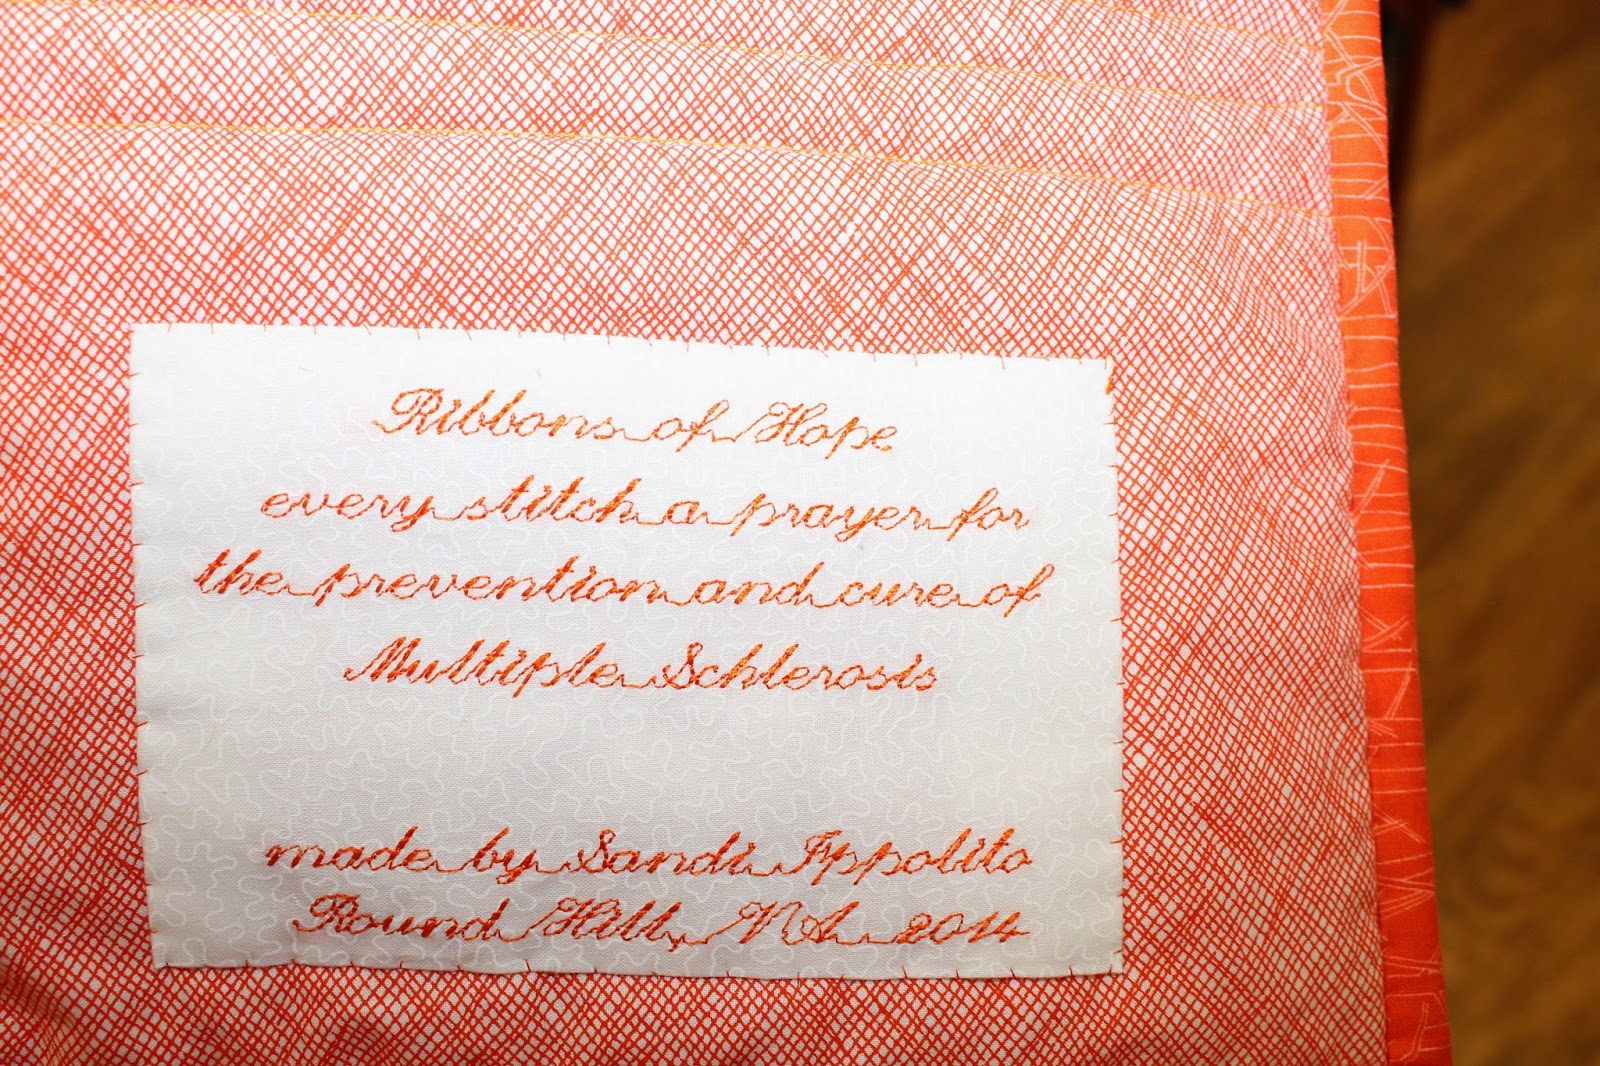 Ribbons of Hope
every stitch a prayer for
the prevention and cure of
Multiple Schlerosis
made by Sandi Ippolito
Round Hill, VA 2014